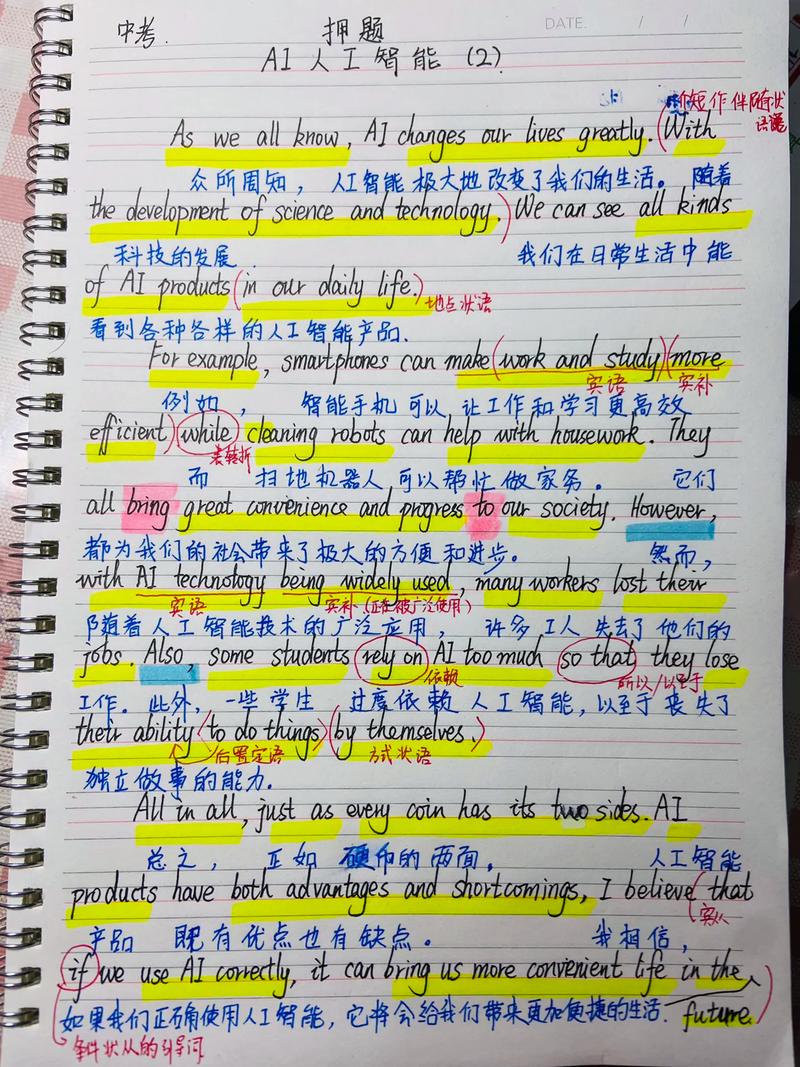 中考. 押题 DATE. / /
AI人工智能 (2).
介短作伴随状
语
As we all know, AI changes our lives greatly. (With
众所周知，人工智能极大地改变了我们的生活。随着
the development of science and technology.) We can see all kinds
科技的发展 我们在日常生活中能
of AI products (in our daily life.) 地点状语
看到各种各样的人工智能产品.
For example, smartphones can make (work and study) (more
宾语 宾补
例如，智能手机可以让工作和学习更高效
efficient) while cleaning robots can help with housework. They
表转折
而 扫地机器人可以帮忙做家务。 它们
all bring great convenience and progress to our society. However,
都为我们的社会带来了极大的方便和进步。 然而，
with AI technology being widely used, many workers lost their
宾语 宾补 (正在被广泛使用)
随着人工智能技术的广泛应用， 许多工人失去了他们的
jobs. Also, some students rely on AI too much so that they lose
依赖 所以/以至于
工作。此外，一些学生 过度依赖人工智能，以至于丧失了
their ability (to do things) (by themselves.)
后置定语 方式状语
独立做事的能力.
All in all, just as every coin has its two sides. AI
总之， 正如 硬币的两面。 人工智能
products have both advantages and shortcomings, I believe (that
宾从
产品 既有优点也有缺点。 我相信，
if we use AI correctly, it can bring us more convenient life in the
如果我们正确使用人工智能，它将会给我们带来更加便捷的生活. future.)
条件状从的引导词